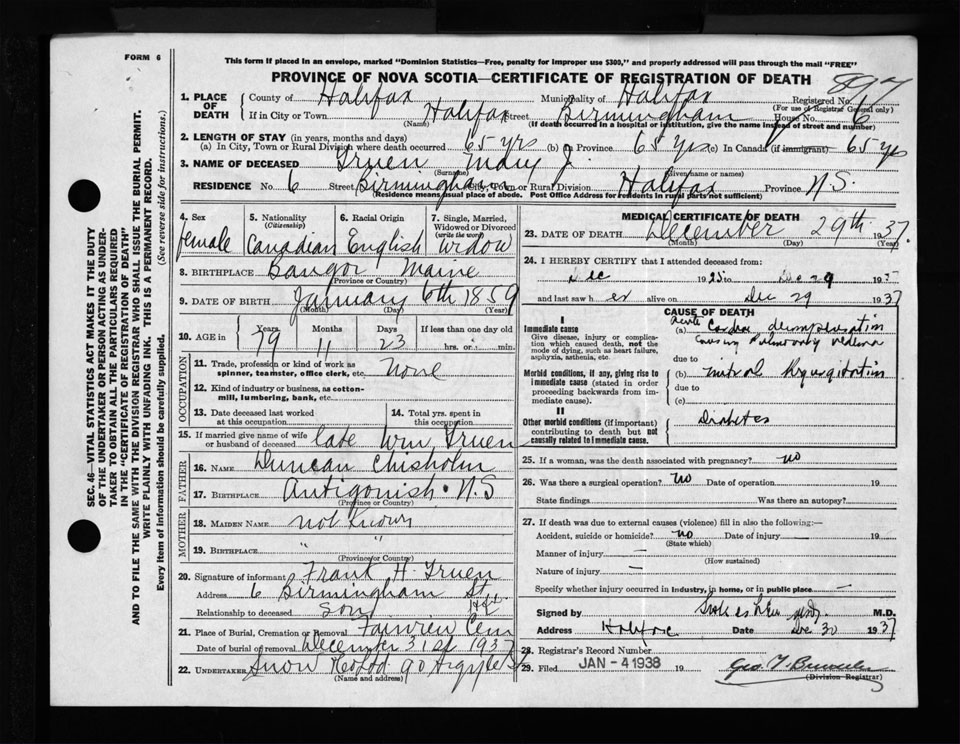 FORM 6
This form if placed in an envelope, marked "Dominion Statistics—Free, penalty for improper use $300," and properly addressed will pass through the mail "FREE"
PROVINCE OF NOVA SCOTIA—CERTIFICATE OF REGISTRATION OF DEATH
897
SEC. 46—VITAL STATISTICS ACT MAKES IT THE DUTY
OF THE UNDERTAKER OR PERSON ACTING AS UNDER-
TAKER TO OBTAIN ALL THE PARTICULARS REQUIRED
IN THE "CERTIFICATE OF REGISTRATION OF DEATH"
AND TO FILE THE SAME WITH THE DIVISION REGISTRAR WHO SHALL ISSUE THE BURIAL PERMIT.
WRITE PLAINLY WITH UNFADING INK. THIS IS A PERMANENT RECORD.
Every item of information should be carefully supplied. (See reverse side for instructions.)
1. PLACE OF DEATH County of Halifax Municipality of Halifax Registered No.
(For use of Registrar General only)
If in City or Town Halifax Street Birmingham House No. 6
(Name) (If death occurred in a hospital or institution, give the name instead of street and number)
2. LENGTH OF STAY (in years, months and days)
(a) In City, Town or Rural Division where death occurred 65 yrs (b) In Province 65 yrs (c) In Canada (if immigrant) 65 yrs
3. NAME OF DECEASED Gruen Mary J.
(Surname) (Given name or names)
RESIDENCE No. 6 Street Birmingham City, Town or Rural Division Halifax Province N.S.
(Residence means usual place of abode. Post Office Address for residents in rural parts not sufficient)
4. Sex female
5. Nationality (Citizenship) Canadian
6. Racial Origin English
7. Single, Married, Widowed or Divorced (write the word) Widow
8. BIRTHPLACE Bangor Maine
(Province or Country)
9. DATE OF BIRTH January 6th 1859
(Month) (Day) (Year)
10. AGE in Years 79 Months 11 Days 23 If less than one day old hrs. or min.
OCCUPATION
11. Trade, profession or kind of work as spinner, teamster, office clerk, etc. None
12. Kind of industry or business, as cotton-mill, lumbering, bank, etc.
13. Date deceased last worked at this occupation
14. Total yrs. spent in this occupation
15. If married give name of wife or husband of deceased late Wm. Gruen
FATHER
16. NAME Duncan Chisholm
17. BIRTHPLACE Antigonish. N.S
(Province or Country)
MOTHER
18. MAIDEN NAME not known
19. BIRTHPLACE " "
(Province or Country)
20. Signature of informant Frank H. Gruen
Address 6 Birmingham St. Hfx
Relationship to deceased son
21. Place of Burial, Cremation or Removal Fairview Cem
Date of burial or removal December 31st 1937
22. UNDERTAKER Snow 90 Argyle St
(Name and address)
MEDICAL CERTIFICATE OF DEATH
23. DATE OF DEATH December 29th 1937.
(Month) (Day) (Year)
24. I HEREBY CERTIFY that I attended deceased from:
Dec 1925 to Dec 29 193
and last saw her alive on Dec 29 1937
CAUSE OF DEATH
I
Immediate cause
Give disease, injury or complication which caused death, not the mode of dying, such as heart failure, asphyxia, asthenia, etc.
(a) Acute Cardiac decompensation
causing Pulmonary oedema
due to
Morbid conditions, if any, giving rise to immediate cause (stated in order proceeding backwards from immediate cause).
(b) mitral regurgitation
due to
(c)
II
Other morbid conditions (if important) contributing to death but not causally related to immediate cause.
Diabetes
25. If a woman, was the death associated with pregnancy? no
26. Was there a surgical operation? no Date of operation 19
State findings Was there an autopsy?
27. If death was due to external causes (violence) fill in also the following:—
Accident, suicide or homicide? no Date of injury — 19
(State which)
Manner of injury —
(How sustained)
Nature of injury —
Specify whether injury occurred in industry, in home, or in public place —
Signed by M.D.
Address Halifax Date Dec 30 1937
28. Registrar's Record Number
29. Filed JAN - 4 1938 19
(Division Registrar)